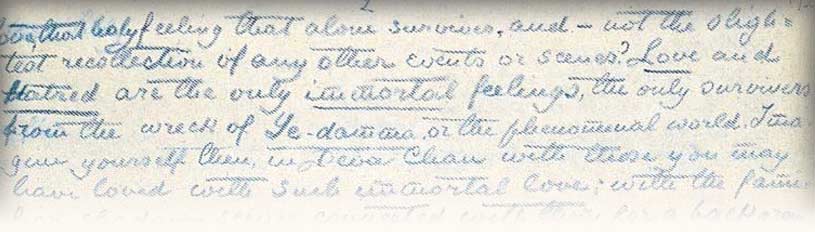 2
love, that holy feeling that alone survives, and — not the sligh=
test recollection of any other events or scenes? Love and
Hatred are the only immortal feelings, the only survivors
from the wreck of Ye-damma, or the phenomenal world. Ima
gine yourself then, in Deva Chan with those you may
have loved with such immortal love; with the fami
liar shadowy scenes connected with them for a backgroun